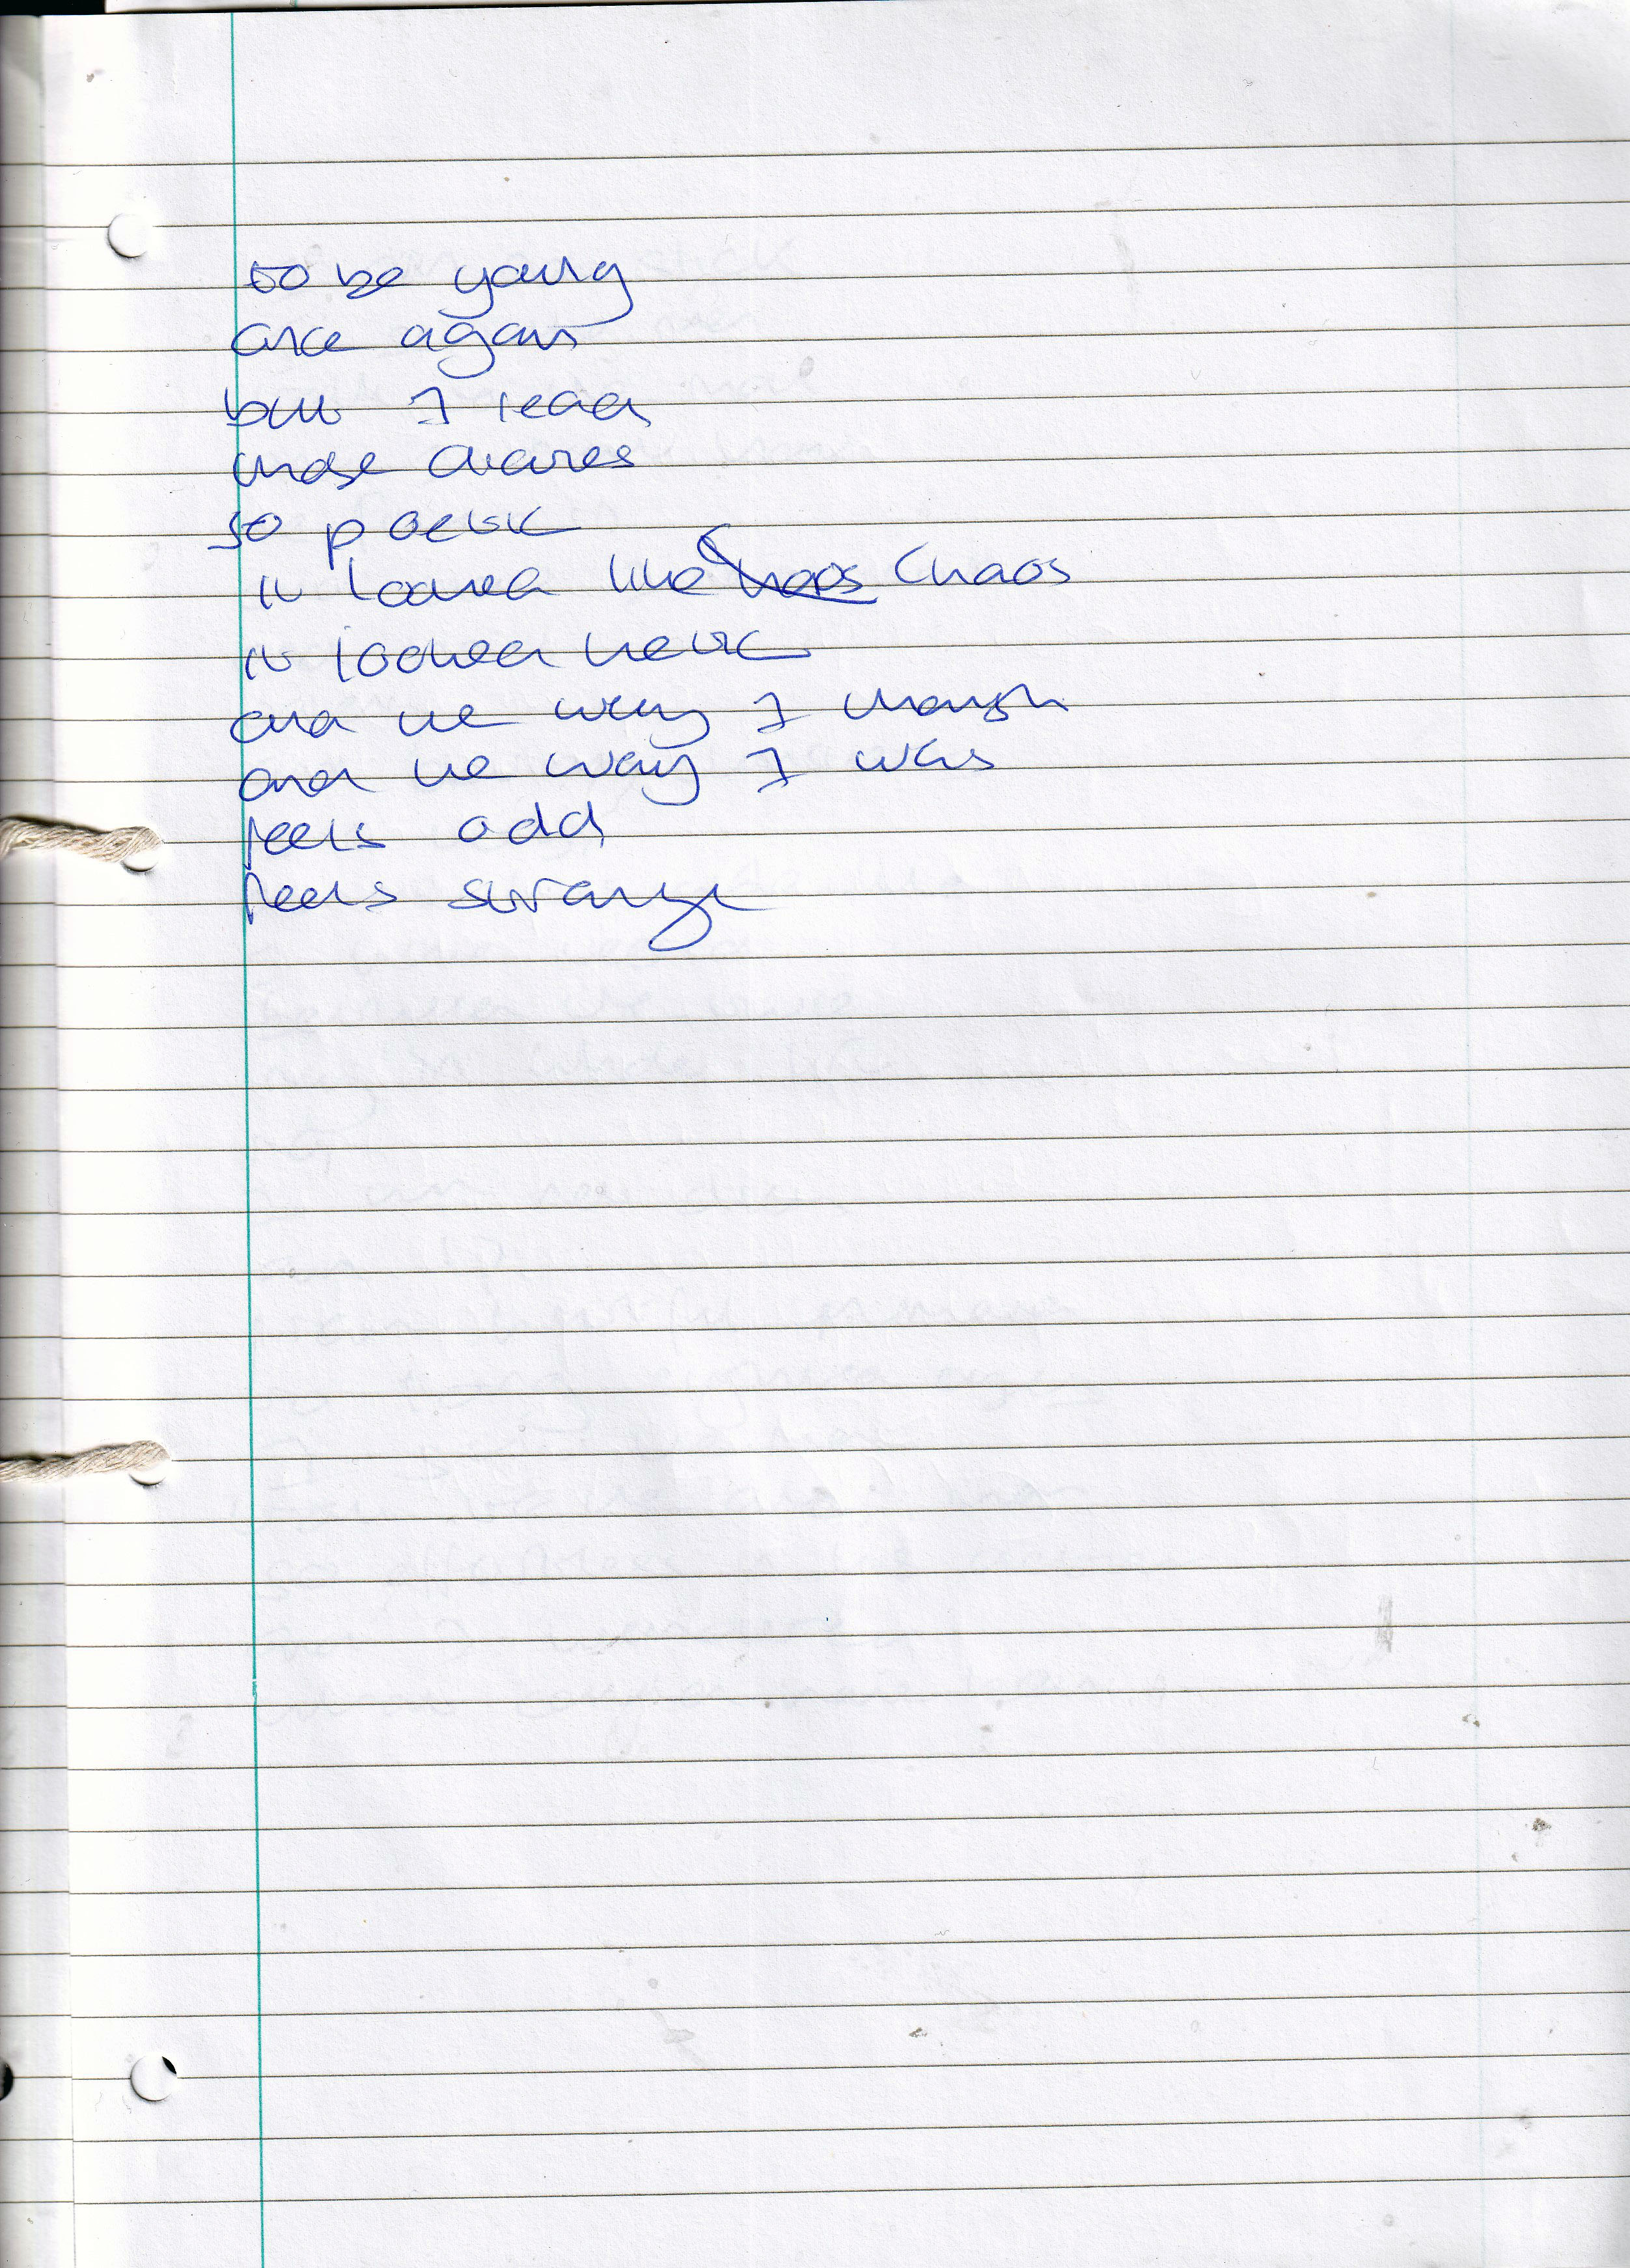 to be young
once again
but I read
those diaries
so poetic
it looked like chaos Chaos
it looked hectic
and the way I thought
and the way I was
feels odd
feels strange